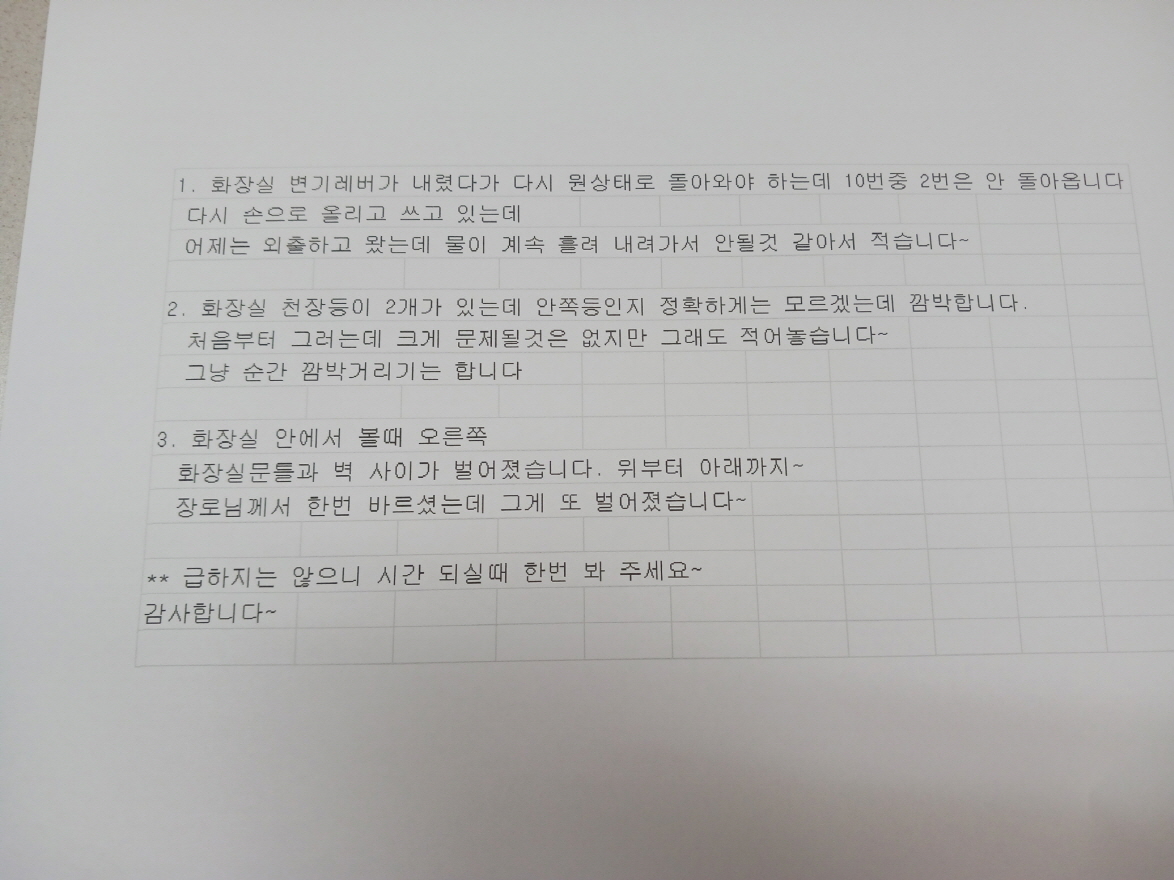 1. 화장실 변기레버가 내렸다가 다시 원상태로 돌아와야 하는데 10번중 2번은 안 돌아옵니다
다시 손으로 올리고 쓰고 있는데
어제는 외출하고 왔는데 물이 계속 흘려 내려가서 안될것 같아서 적습니다~
2. 화장실 천장등이 2개가 있는데 안쪽등인지 정확하게는 모르겠는데 깜박합니다.
처음부터 그러는데 크게 문제될것은 없지만 그래도 적어놓습니다~
그냥 순간 깜박거리기는 합니다
3. 화장실 안에서 볼때 오른쪽
화장실문틀과 벽 사이가 벌어졌습니다. 위부터 아래까지~
장로님께서 한번 바르셨는데 그게 또 벌어졌습니다~
** 급하지는 않으니 시간 되실때 한번 봐 주세요~
감사합니다~